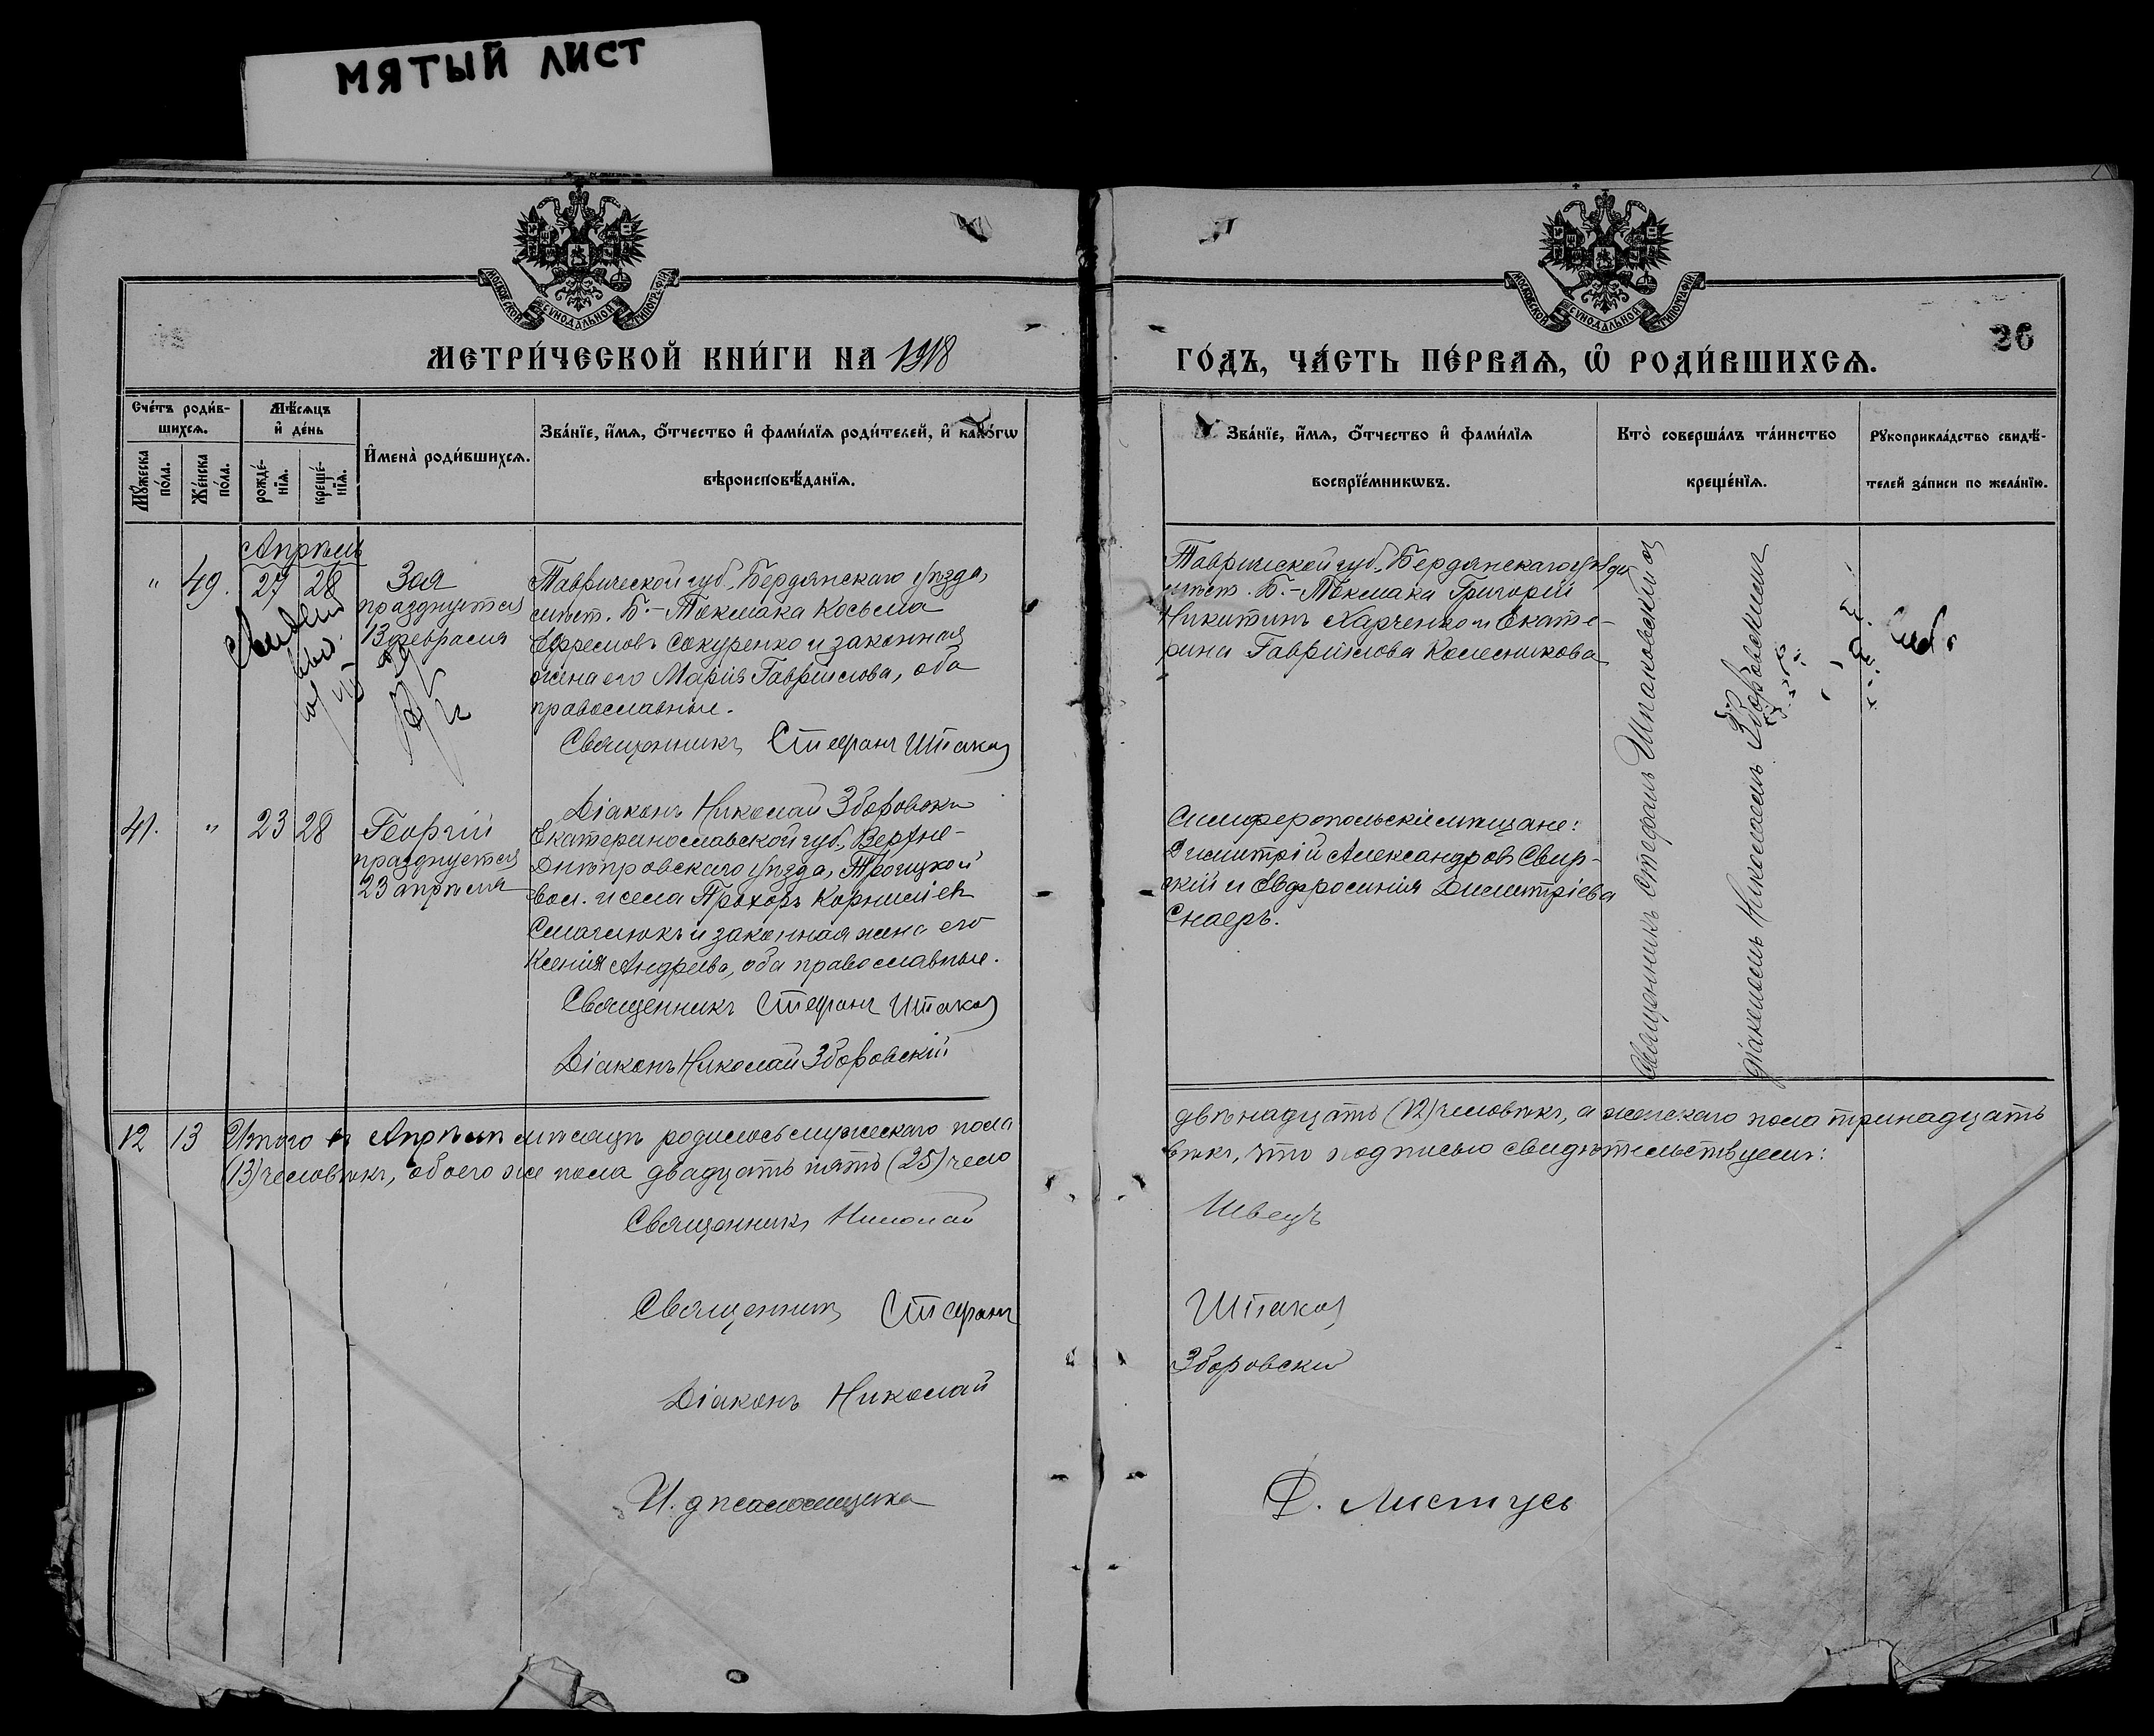 МЯТЫЙ ЛИСТ
МОСКОВСКОЙ СѴНОДАЛЬНОЙ ТИПОГРАФІИ
МОСКОВСКОЙ СѴНОДАЛЬНОЙ ТИПОГРАФІИ
26
МЕТРИ́ЧЕСКОЙ КНИ́ГИ НА 1918
ГО́ДЪ, ЧА́СТЬ ПЕ́РВАѦ, Ѡ҆ РОДИ́ВШИХСѦ.
Сче́тъ роди́в-
шихсѧ.
Мꙋ́жеска по́ла.
Же́нска по́ла.
Мѣ́сѧцъ
и҆ де́нь
рожде́-
нїѧ.
креще́-
нїѧ.
И҆мена̀ роди́вшихсѧ.
Зва́нїе, и҆́мѧ, ѻ҆́тчество и҆ фами́лїѧ роди́телей, и҆ како́гѡ
вѣроисповѣ́данїѧ.
Зва́нїе, и҆́мѧ, ѻ҆́тчество и҆ фами́лїѧ
воспрїе́мникѡвъ.
Кто̀ соверша́лъ та́инство
креще́нїѧ.
Рꙋкоприкла́дство свидѣ́-
телей за́писи по жела́нїю.
Апрѣль
" 49. 27 28
Зоя
празднуется
13 февраля
Таврической губ., Бердянскаго уѣзда,
мѣст. Б.-Токмака Косьма
Ефремовъ Сокуренко и законная
жена его Марія Гавриилова, оба
православные.
Священникъ Стефанъ Шпако
Діаконъ Николай Зборовски
Таврической губ., Бердянскаго уѣзда
мѣст. Б.-Токмака Григорій
Никитинъ Харченко и Екате-
рина Гавриилова Колесникова
Священникъ Стефанъ Шпаковскимъ
діакономъ Николаемъ Зборовскимъ
41. " 23 28
Георгій
празднуется
23 апрѣля
Екатеринославской губ., Верхне-
Днѣпровскаго уѣзда, Троицкой
вол. и села Прохоръ Корниліев
Смаглюкъ и законная жена его
Ксенія Андреева, оба православные.
Священникъ Стефанъ Шпако
Діаконъ Николай Зборовскій
Симферопольскіе мѣщане:
Димитрій Александровъ Свир-
скій и Евфросинія Димитріева
Снаеръ.
12 13 Итого въ Апрѣлѣ мѣсяцѣ родилось мужескаго пола
двѣнадцать (12) человѣкъ, а женскаго пола тринадцать
(13) человѣкъ, обоего же пола двадцать пять (25) чело
вѣкъ, что подписью свидѣтельствуемъ:
Священникъ Николай
Швецъ
Священникъ Стефанъ
Шпако
Діаконъ Николай
Зборовски
И. д псаломщика
Ф. Листусь